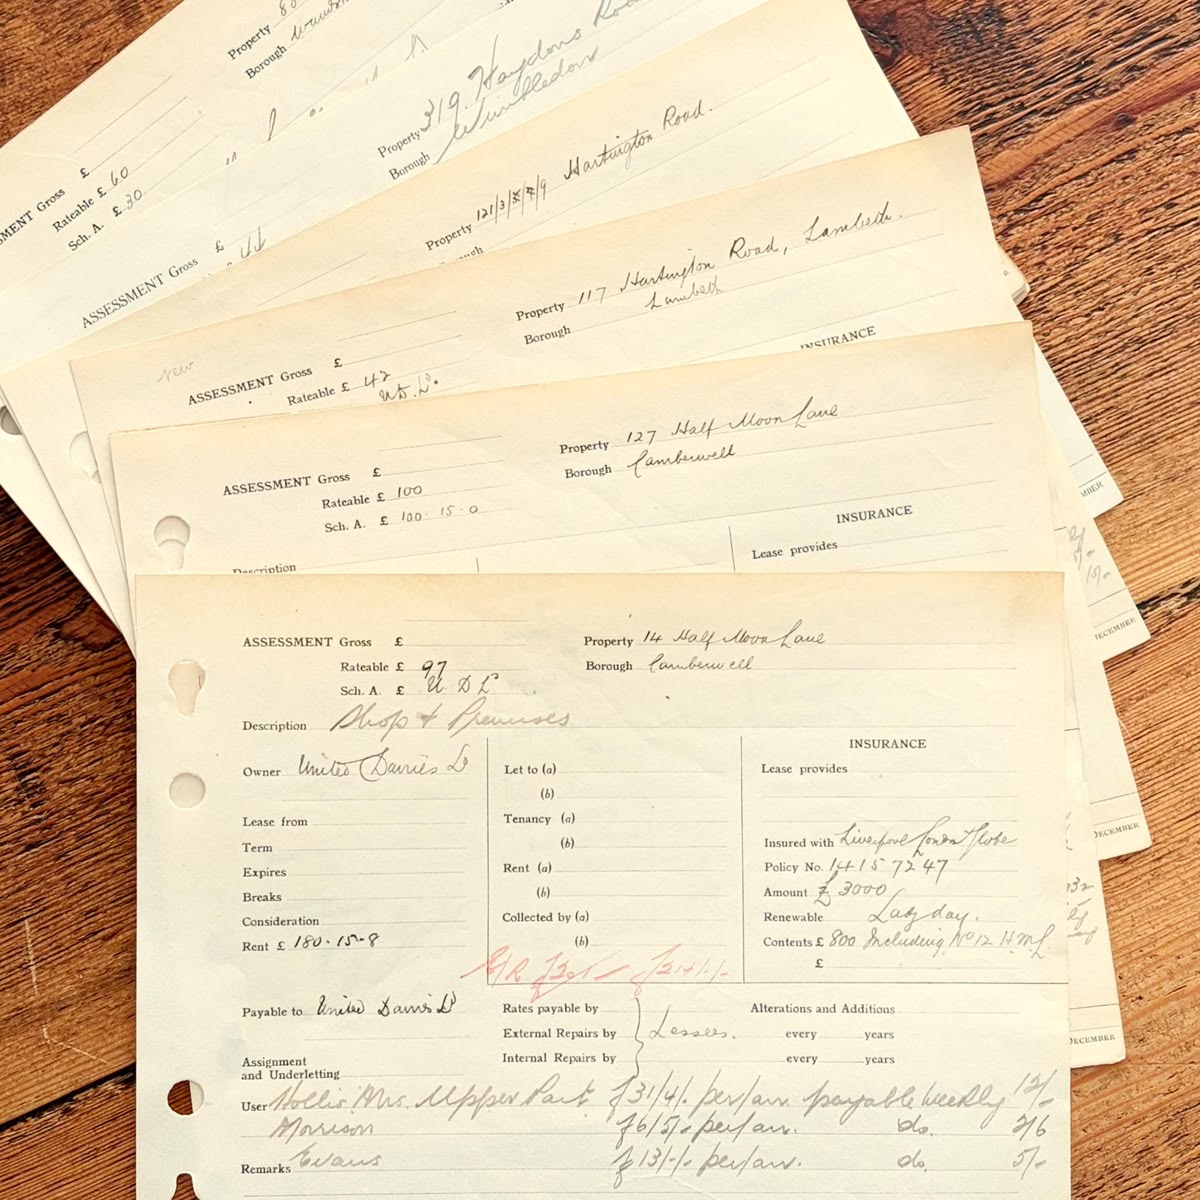 Property 80
Borough
ASSESSMENT Gross £
Rateable £ 60
Sch. A. £ 30
Property 319. Haydons Road
Borough Wimbledon
ASSESSMENT Gross £
Property 121/3/ /9 Hartington Road.
Property 117 Hartington Road, Lambeth.
Borough Lambeth
new
ASSESSMENT Gross £
Rateable £ 42
U.D.L.
INSURANCE
Property 127 Half Moon Lane
Borough Camberwell
ASSESSMENT Gross £
Rateable £ 100
Sch. A. £ 100-15-0
INSURANCE
Lease provides
Description
ASSESSMENT Gross £
Property 14 Half Moon Lane
Rateable £ 97
Borough Camberwell
Sch. A. £ U D L
Description Shop & Premises
INSURANCE
Owner United Dairies Ld
Let to (a)
Lease provides
(b)
Lease from
Tenancy (a)
Term
(b)
Insured with Liverpool London & Globe
Expires
Rent (a)
Policy No. 14157247
Breaks
(b)
Amount £ 3000
Consideration
Collected by (a)
Renewable Lady day.
Rent £ 180-15-8
(b)
Contents £ 800 Including No 12 H.M.L.
£
Payable to United Dairies Ld
Rates payable by
Alterations and Additions
External Repairs by Lessees.
every years
Internal Repairs by
every years
Assignment
and Underletting
User Hollis Mrs. Upper Part £31/4/- per/an. payable weekly 12/-
Morrison £6/5/- per/an. do. 2/6
Remarks Evans £13/-/- per/an. do. 5/-
DECEMBER
DECEMBER
DECEMBER